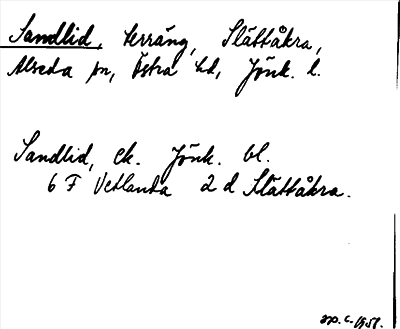 Sandlid, terräng, Slättåkra,
Alseda sn, Östra hd, Jönk. l.
Sandlid, ek. Jönk. bl.
6 F Vetlanda 2 d Slättåkra.